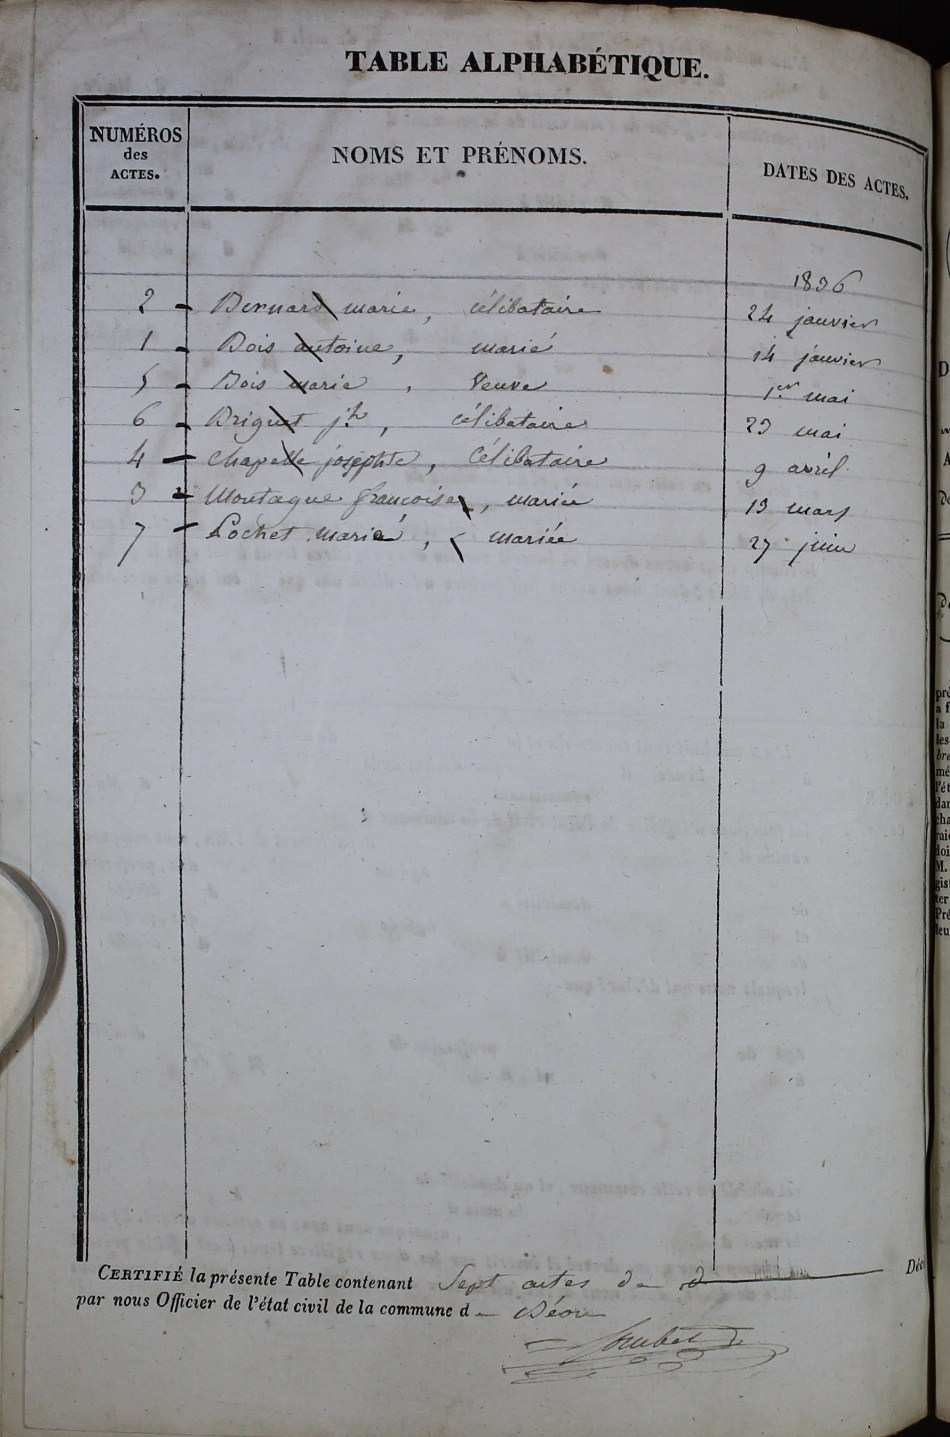 TABLE ALPHABÉTIQUE.
NUMÉROS des ACTES. NOMS ET PRÉNOMS. DATES DES ACTES.
1836
2 Bernard marie, célibataire 24 janvier
1 Bois antoine, marié 14 janvier
5 Bois marie, Veuve 1er mai
6 Briguet jh, célibataire 23 mai
4 chapelle josephte, Célibataire 9 avril
3 Montague françoise, mariée 13 mars
7 Lochet marie, mariée 27 juin
CERTIFIÉ la présente Table contenant Sept actes de
par nous Officier de l'état civil de la commune de